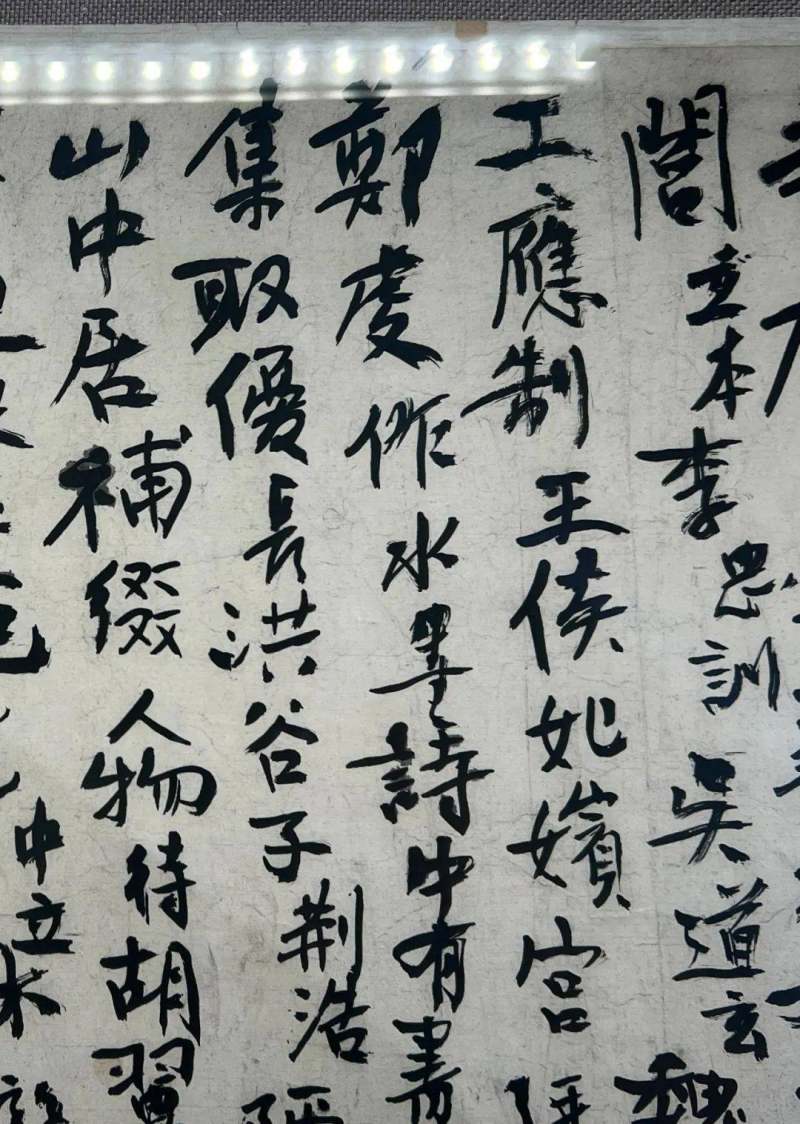 閻立本李思訓吳道玄魏
工應制王侯妃嬪宮
鄭虔作水墨詩中有畫
集取優長洪谷子荊浩
山中居補綴人物待胡翼
中立